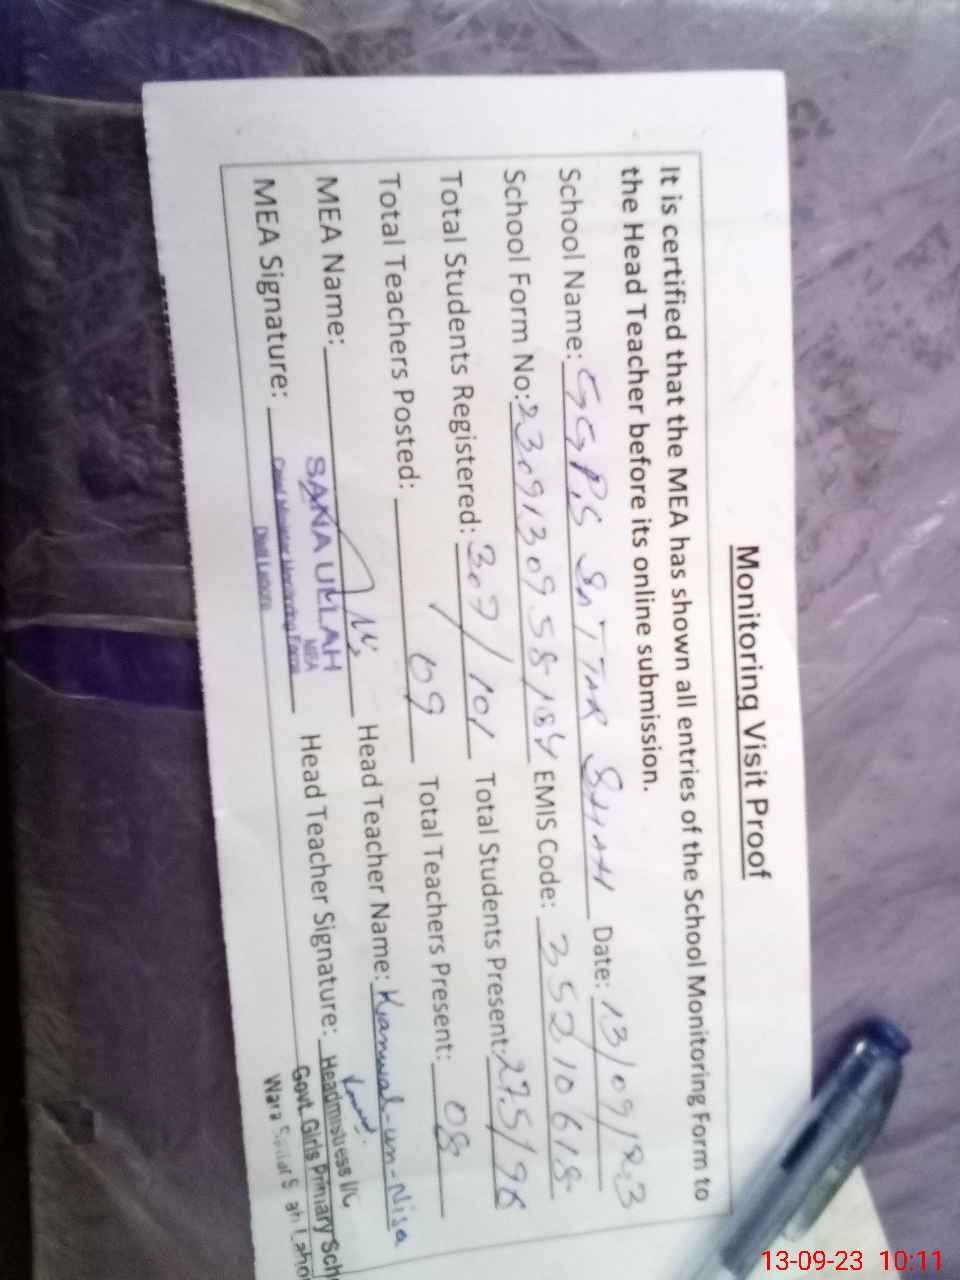 Monitoring Visit Proof
It is certified that the MEA has shown all entries of the School Monitoring Form to
the Head Teacher before its online submission.
School Name: GGPS SATTAR SHAH Date: 13/09/23
School Form No: 230913095 EMIS Code: 35210618
Total Students Registered: 307/101 Total Students Present: 275/96
Total Teachers Posted: 09 Total Teachers Present: 08
MEA Name: Head Teacher Name: Kanwal-un-Nisa
SANA ULLAH
MEA
MEA Signature: Head Teacher Signature:
Chief Minister Monitoring Force
Distt Lahore
Headmistress I/C
Govt. Girls Primary Sch
Wara Sattar S ah Laho
13-09-23 10:11